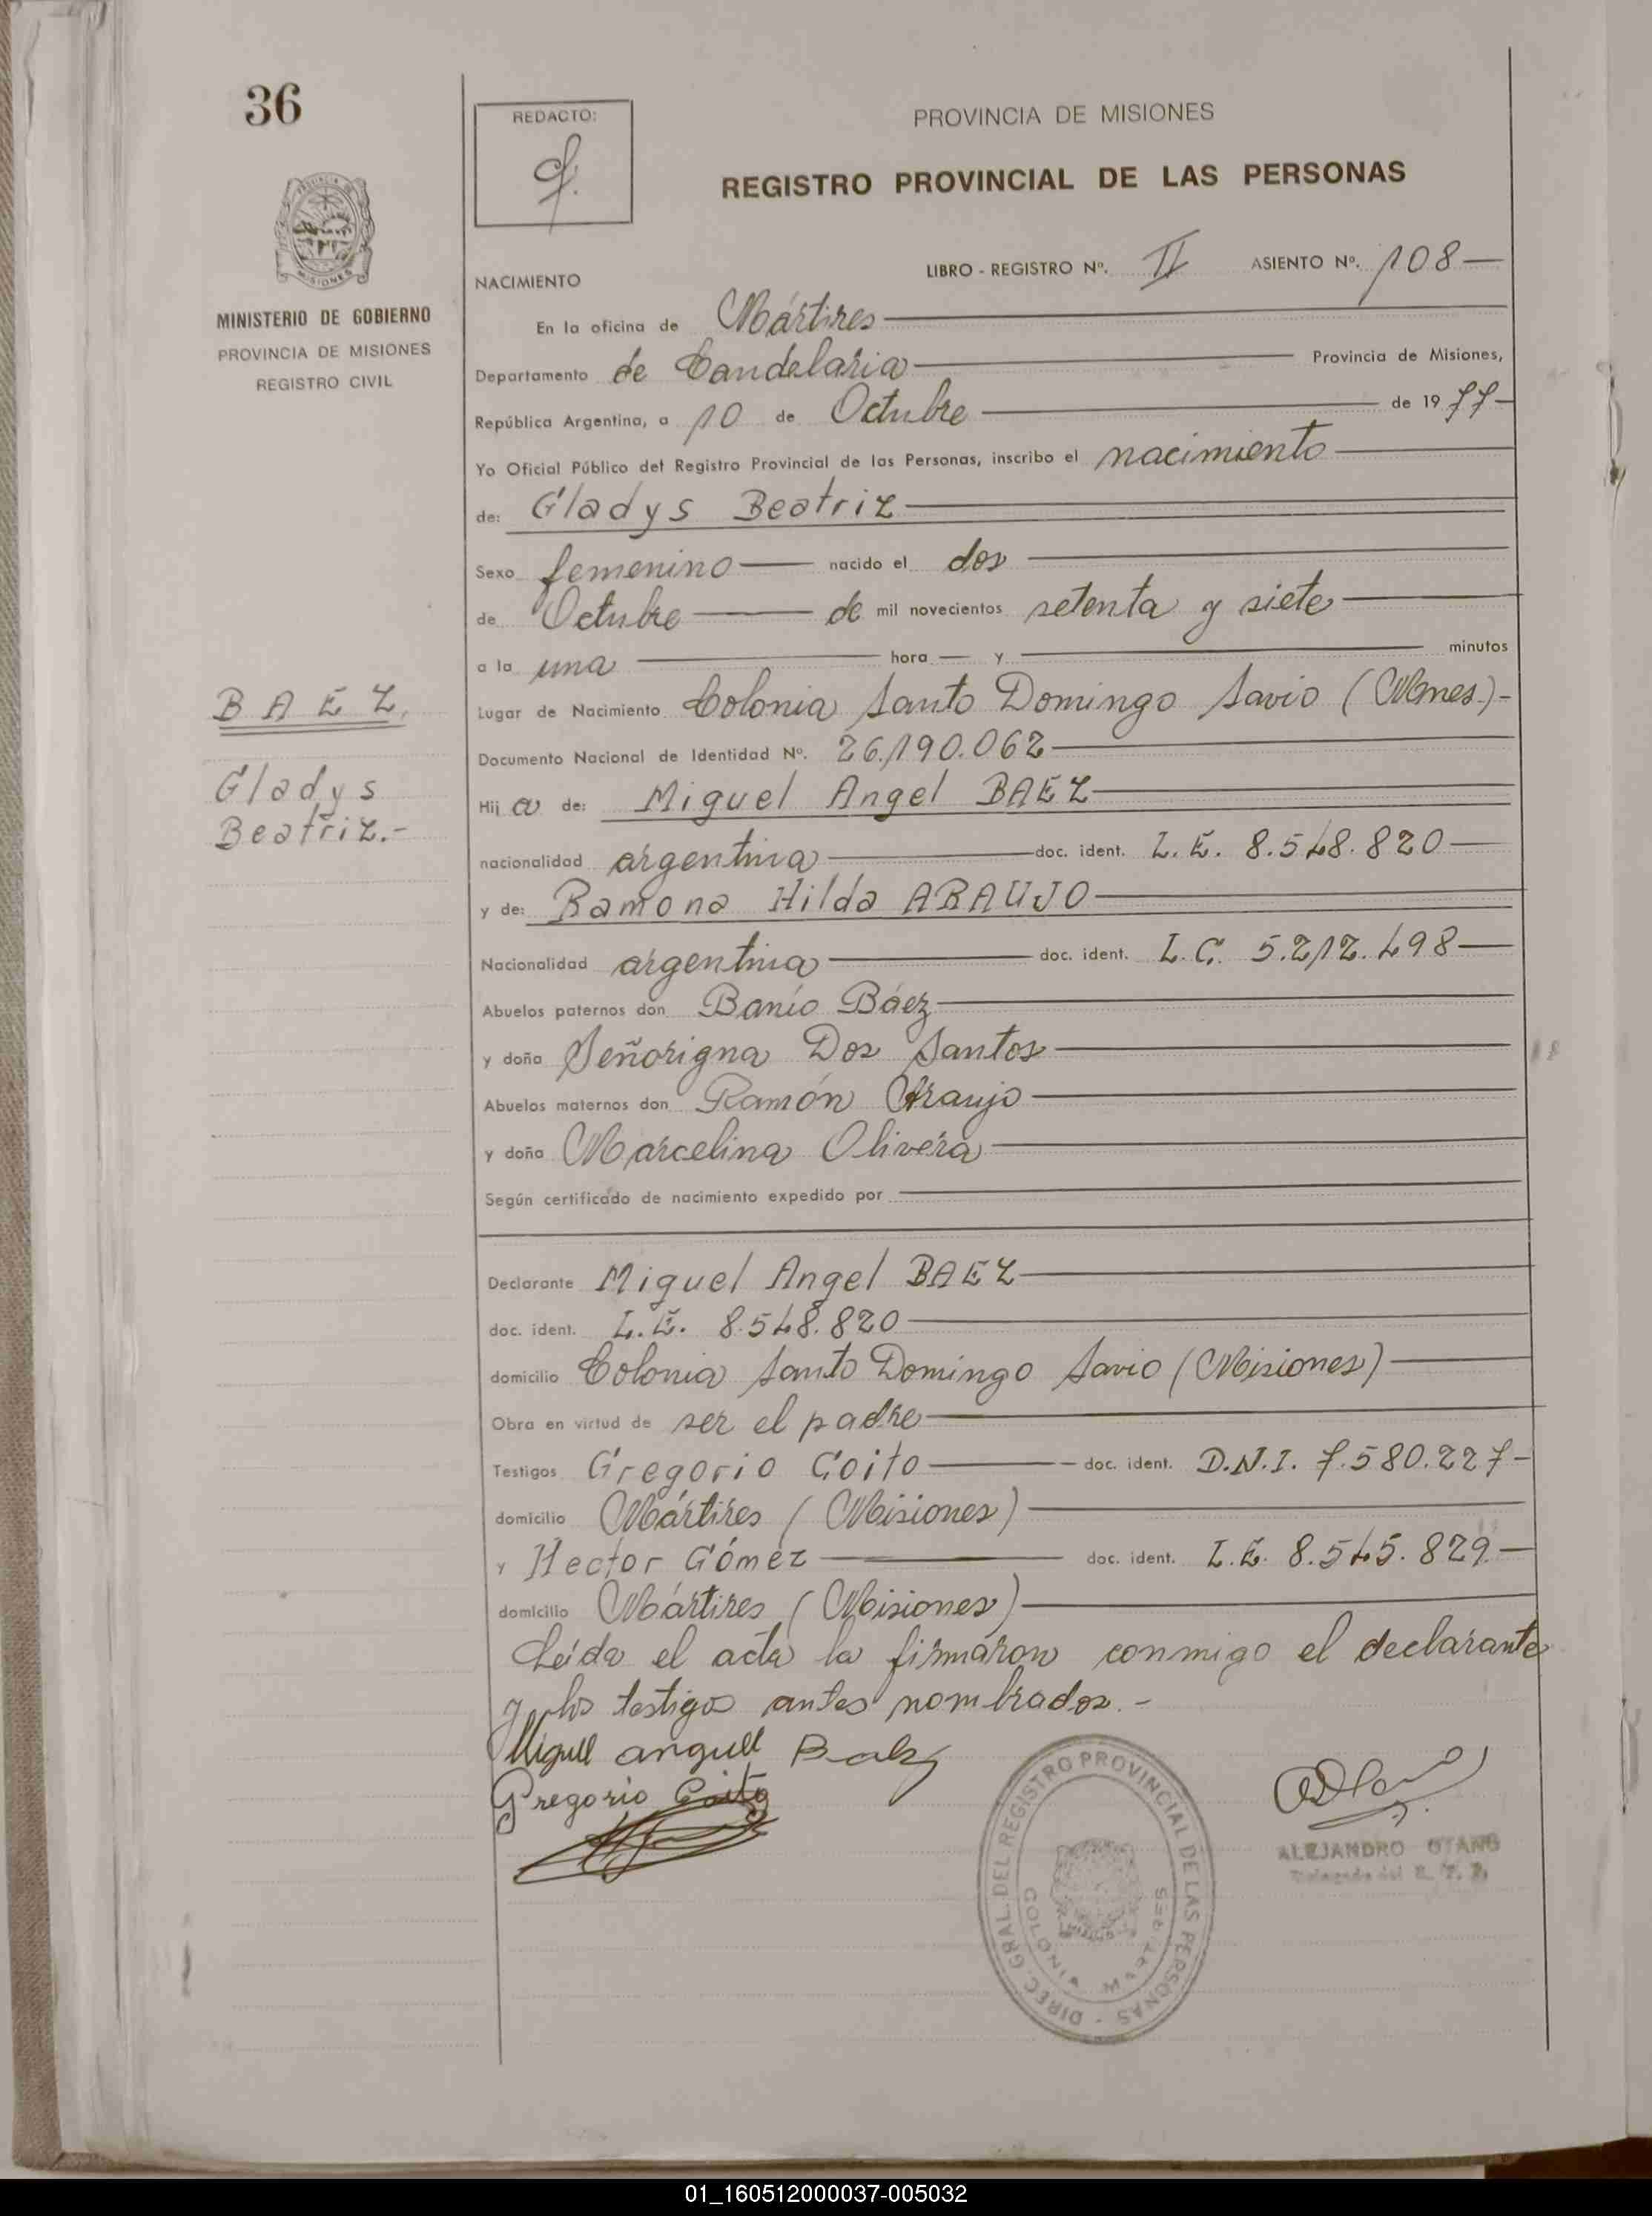 36
REDACTO:
PROVINCIA DE MISIONES
REGISTRO PROVINCIAL DE LAS PERSONAS
MINISTERIO DE GOBIERNO
PROVINCIA DE MISIONES
REGISTRO CIVIL
LIBRO - REGISTRO Nº. II ASIENTO Nº. 108
NACIMIENTO
En la oficina de Mártires
Departamento de Candelaria Provincia de Misiones,
República Argentina, a 10 de Octubre de 1977
Yo Oficial Público del Registro Provincial de las Personas, inscribo el nacimiento
de: Gladys Beatriz
Sexo femenino nacido el dos
de Octubre de mil novecientos setenta y siete
a la una hora y minutos
BAEZ,
Lugar de Nacimiento Colonia Santo Domingo Savio (Mnes.)-
Documento Nacional de Identidad Nº. 26.190.062
Gladys
Beatriz.-
Hij a de: Miguel Angel BAEZ
nacionalidad argentina doc. ident. L.E. 8.548.820
y de: Ramona Hilda ARAUJO
Nacionalidad argentina doc. ident. L.C. 5.212.498
Abuelos paternos don Banio Báez
y doña Señorigna Dos Santos
Abuelos maternos don Ramón Araujo
y doña Marcelina Olivera
Según certificado de nacimiento expedido por
Declarante Miguel Angel BAEZ
doc. ident. L.E. 8.548.820
domicilio Colonia Santo Domingo Savio (Misiones)
Obra en virtud de ser el padre
Testigos Gregorio Goito doc. ident. D.N.I. 7.580.227-
domicilio Mártires (Misiones)
y Hector Gómez doc. ident. L.E. 8.545.829.-
domicilio Mártires (Misiones)
Leída el acta la firmaron conmigo el declarante
y los testigos antes nombrados.-
Miguel anguel Baez
Gregorio Goito
DIREC. GRAL. DEL REGISTRO PROVINCIAL DE LAS PERSONAS -
COLONIA MARTIRES
ALEJANDRO OTANO
Delegado del R. P. P.
01_160512000037-005032